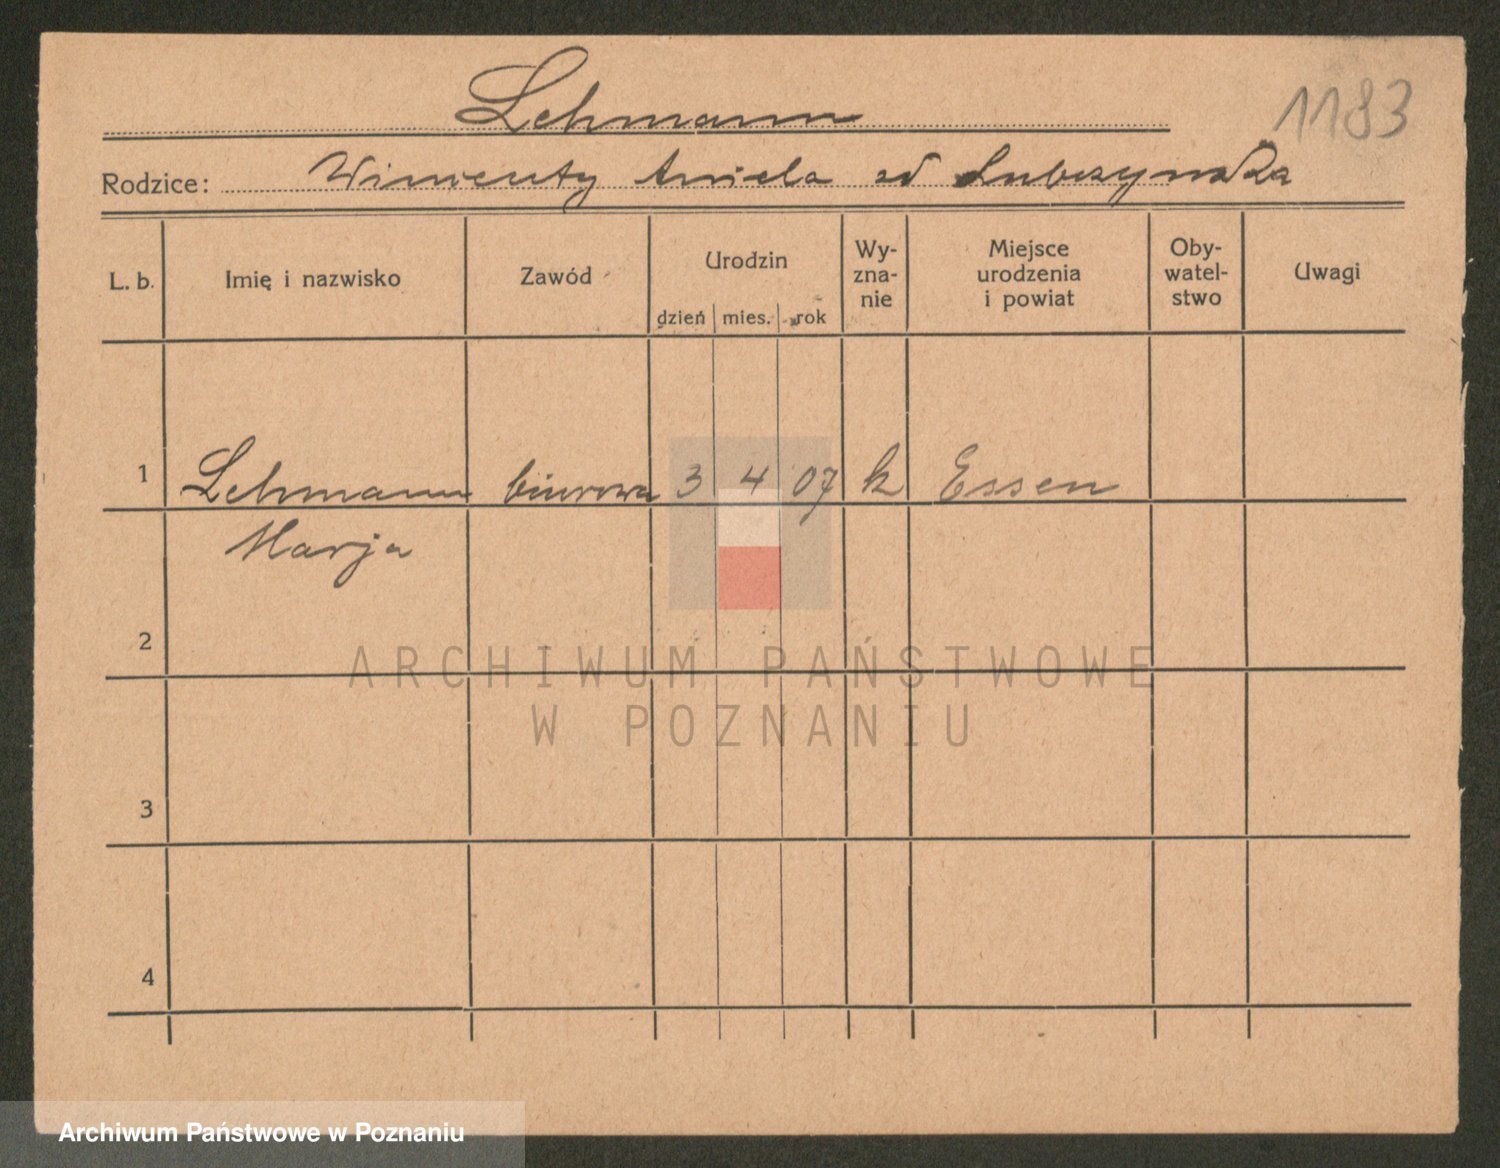 1183
Lehmann
Rodzice: Wincenty Aniela zd Lubczyńska
L. b. Imię i nazwisko Zawód Urodzin Wy-zna-nie Miejsce urodzenia i powiat Oby-watel-stwo Uwagi
dzień mies. rok
1 Lehmann biurowa 3 4 07 k Essen
Marja
2
ARCHIWUM PAŃSTWOWE
W POZNANIU
3
4
Archiwum Państwowe w Poznaniu